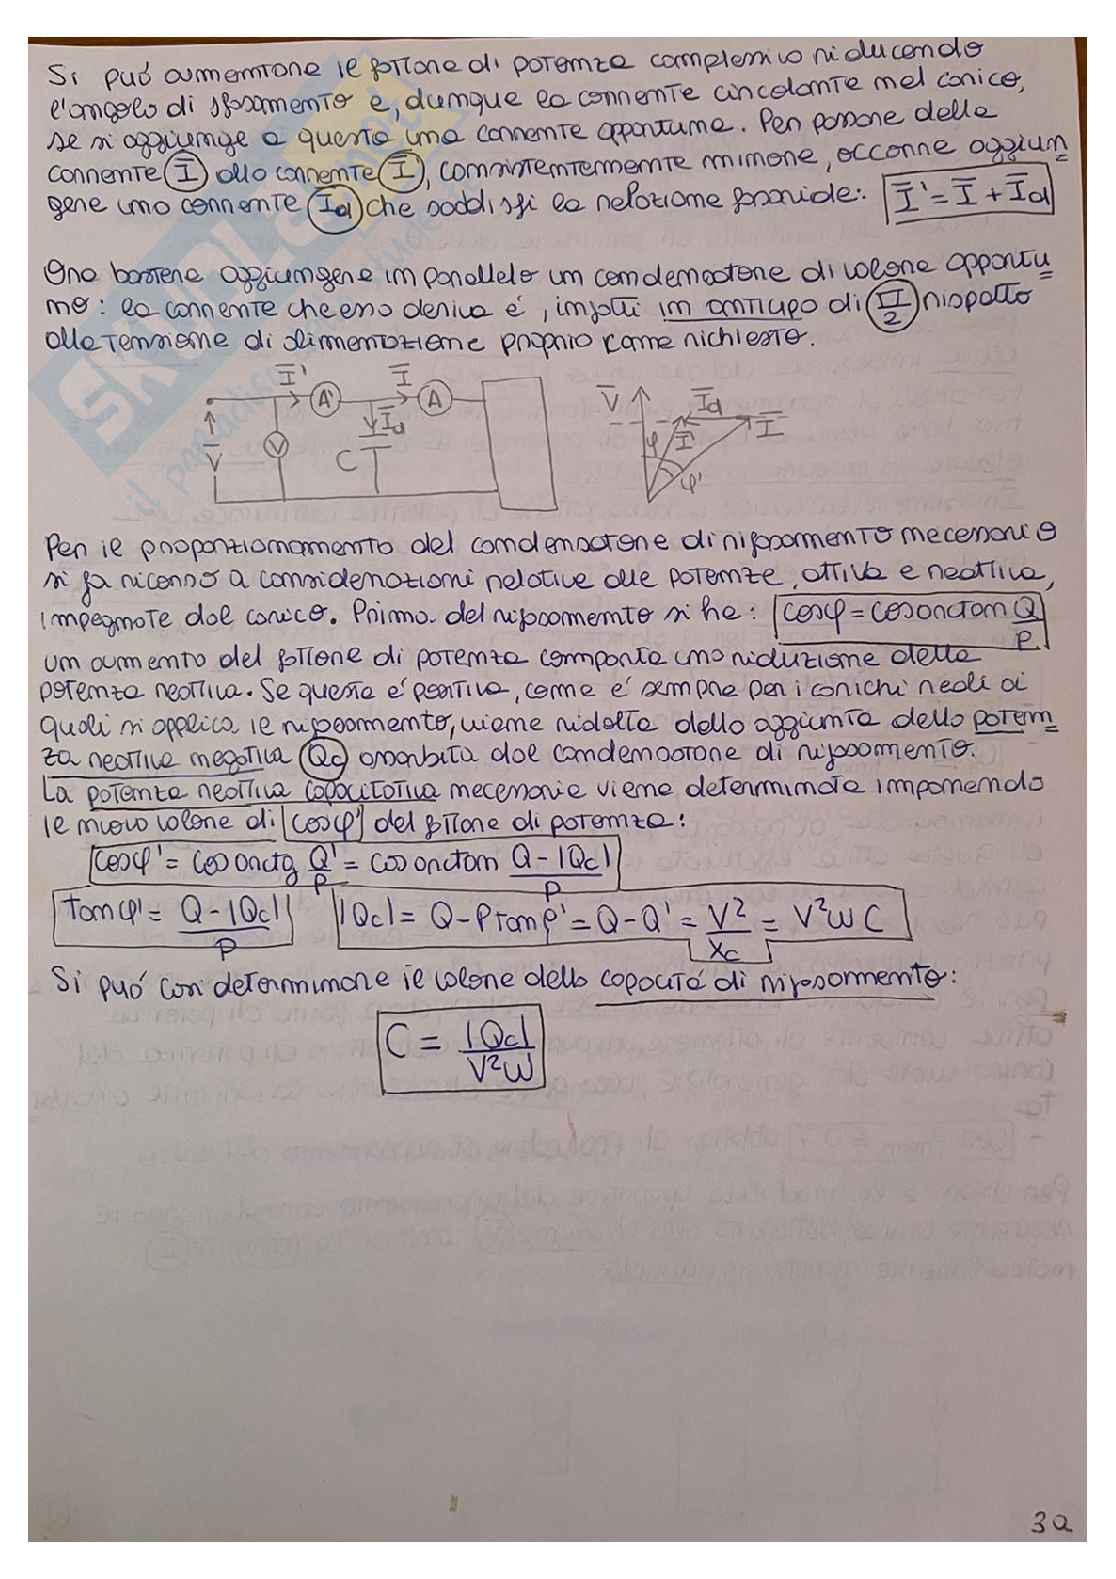 Si può aumentare il fattore di potenza complessivo riducendo
l'angolo di sfasamento e, dunque la corrente circolante nel carico,
se si aggiunge a questa una corrente opportuna. Per passare dalla
corrente Ī alla corrente Ī, consistentemente minore, occorre aggiun
gere una corrente Īd che soddisfi la relazione fasoriale: Ī' = Ī + Īd
Ora basterà aggiungere in parallelo un condensatore di valore opportu
no: la corrente che esso deriva è, infatti in anticipo di π/2 rispetto
alla tensione di alimentazione proprio come richiesto.
Ī' A' Ī A
V̄ V C Īd
V̄ Īd Ī
φ Ī' φ'
Per il proporzionamento del condensatore di rifasamento necessario
si fa ricorso a considerazioni relative alle potenze, attiva e reattiva,
impegnate dal carico. Prima del rifasamento si ha: cosφ = cos arctan Q/P
un aumento del fattore di potenza comporta una riduzione della
potenza reattiva. Se questa è positiva, come è sempre per i carichi reali ai
quali si applica il rifasamento, viene ridotta dalla aggiunta della poten
za reattiva negativa Qc assorbita dal condensatore di rifasamento.
La potenza reattiva capacitativa necessaria viene determinata imponendo
il nuovo valore di cosφ' del fattore di potenza:
cosφ' = cos arctg Q'/P = cos arctan Q - |Qc|/P
tanφ' = Q - |Qc|/P |Qc| = Q - P tanφ' = Q - Q' = V²/Xc = V²ωC
Si può così determinare il valore della capacità di rifasamento:
C = |Qc|/V²ω
32
SKUOLA
il paradiso